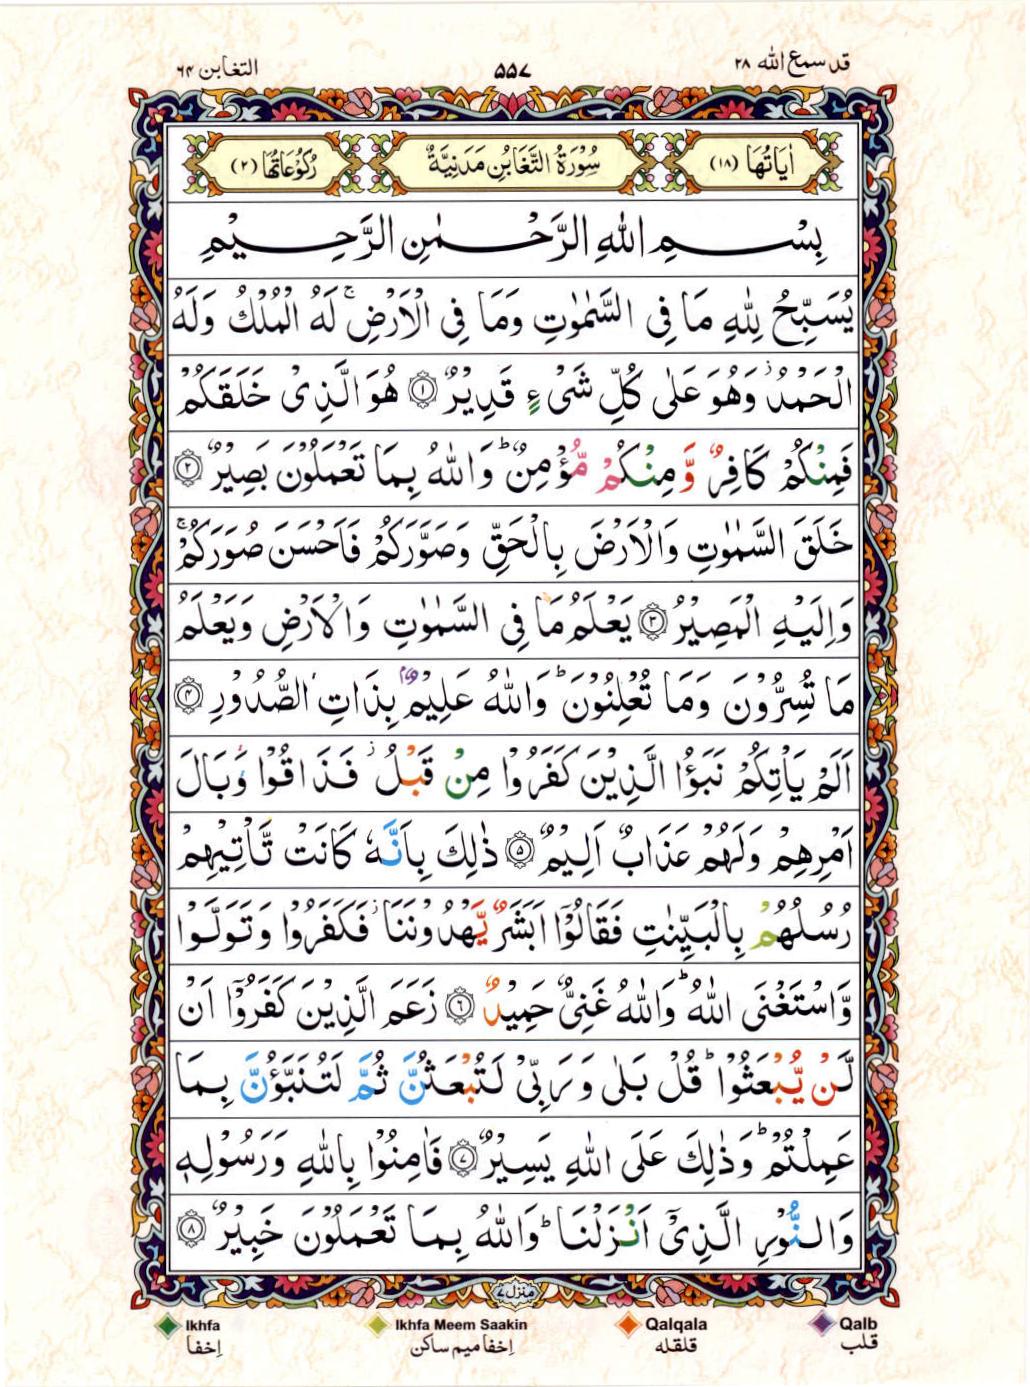 قد سمع الله ۲۸
۵۵۷
التغابن ۶۴
اٰيَاتُهَا (۱۸)
سُوْرَةُ التَّغَابُنِ مَدَنِيَّةٌ
رُكُوْعَاتُهَا (۲)
بِسْمِ اللّٰهِ الرَّحْمٰنِ الرَّحِيْمِ
يُسَبِّحُ لِلّٰهِ مَا فِى السَّمٰوٰتِ وَمَا فِى الْاَرْضِ ۚ لَهُ الْمُلْكُ وَلَهُ
الْحَمْدُ ۡ وَهُوَ عَلٰى كُلِّ شَىْءٍ قَدِيْرٌ ﴿۱﴾ هُوَ الَّذِىْ خَلَقَكُمْ
فَمِنْكُمْ كَافِرٌ وَّمِنْكُمْ مُّؤْمِنٌ ؕ وَاللّٰهُ بِمَا تَعْمَلُوْنَ بَصِيْرٌ ﴿۲﴾
خَلَقَ السَّمٰوٰتِ وَالْاَرْضَ بِالْحَقِّ وَصَوَّرَكُمْ فَاَحْسَنَ صُوَرَكُمْ ۚ
وَاِلَيْهِ الْمَصِيْرُ ﴿۳﴾ يَعْلَمُ مَا فِى السَّمٰوٰتِ وَالْاَرْضِ وَيَعْلَمُ
مَا تُسِرُّوْنَ وَمَا تُعْلِنُوْنَ ؕ وَاللّٰهُ عَلِيْمٌۢ بِذَاتِ الصُّدُوْرِ ﴿۴﴾
اَلَمْ يَاْتِكُمْ نَبَؤُا الَّذِيْنَ كَفَرُوْا مِنْ قَبْلُ ۡ فَذَاقُوْا وَبَالَ
اَمْرِهِمْ وَلَهُمْ عَذَابٌ اَلِيْمٌ ﴿۵﴾ ذٰلِكَ بِاَنَّهٗ كَانَتْ تَّاْتِيْهِمْ
رُسُلُهُمْ بِالْبَيِّنٰتِ فَقَالُوْۤا اَبَشَرٌ يَّهْدُوْنَنَا ۡ فَكَفَرُوْا وَتَوَلَّوْا
وَّاسْتَغْنَى اللّٰهُ ؕ وَاللّٰهُ غَنِىٌّ حَمِيْدٌ ﴿۶﴾ زَعَمَ الَّذِيْنَ كَفَرُوْۤا اَنْ
لَّنْ يُّبْعَثُوْا ؕ قُلْ بَلٰى وَرَبِّىْ لَتُبْعَثُنَّ ثُمَّ لَتُنَبَّؤُنَّ بِمَا
عَمِلْتُمْ ؕ وَذٰلِكَ عَلَى اللّٰهِ يَسِيْرٌ ﴿۷﴾ فَاٰمِنُوْا بِاللّٰهِ وَرَسُوْلِهٖ
وَالنُّوْرِ الَّذِىْۤ اَنْزَلْنَا ؕ وَاللّٰهُ بِمَا تَعْمَلُوْنَ خَبِيْرٌ ﴿۸﴾
منزل ۷
Ikhfa
اِخفا
Ikhfa Meem Saakin
اِخفا ميم ساكن
Qalqala
قلقله
Qalb
قلب